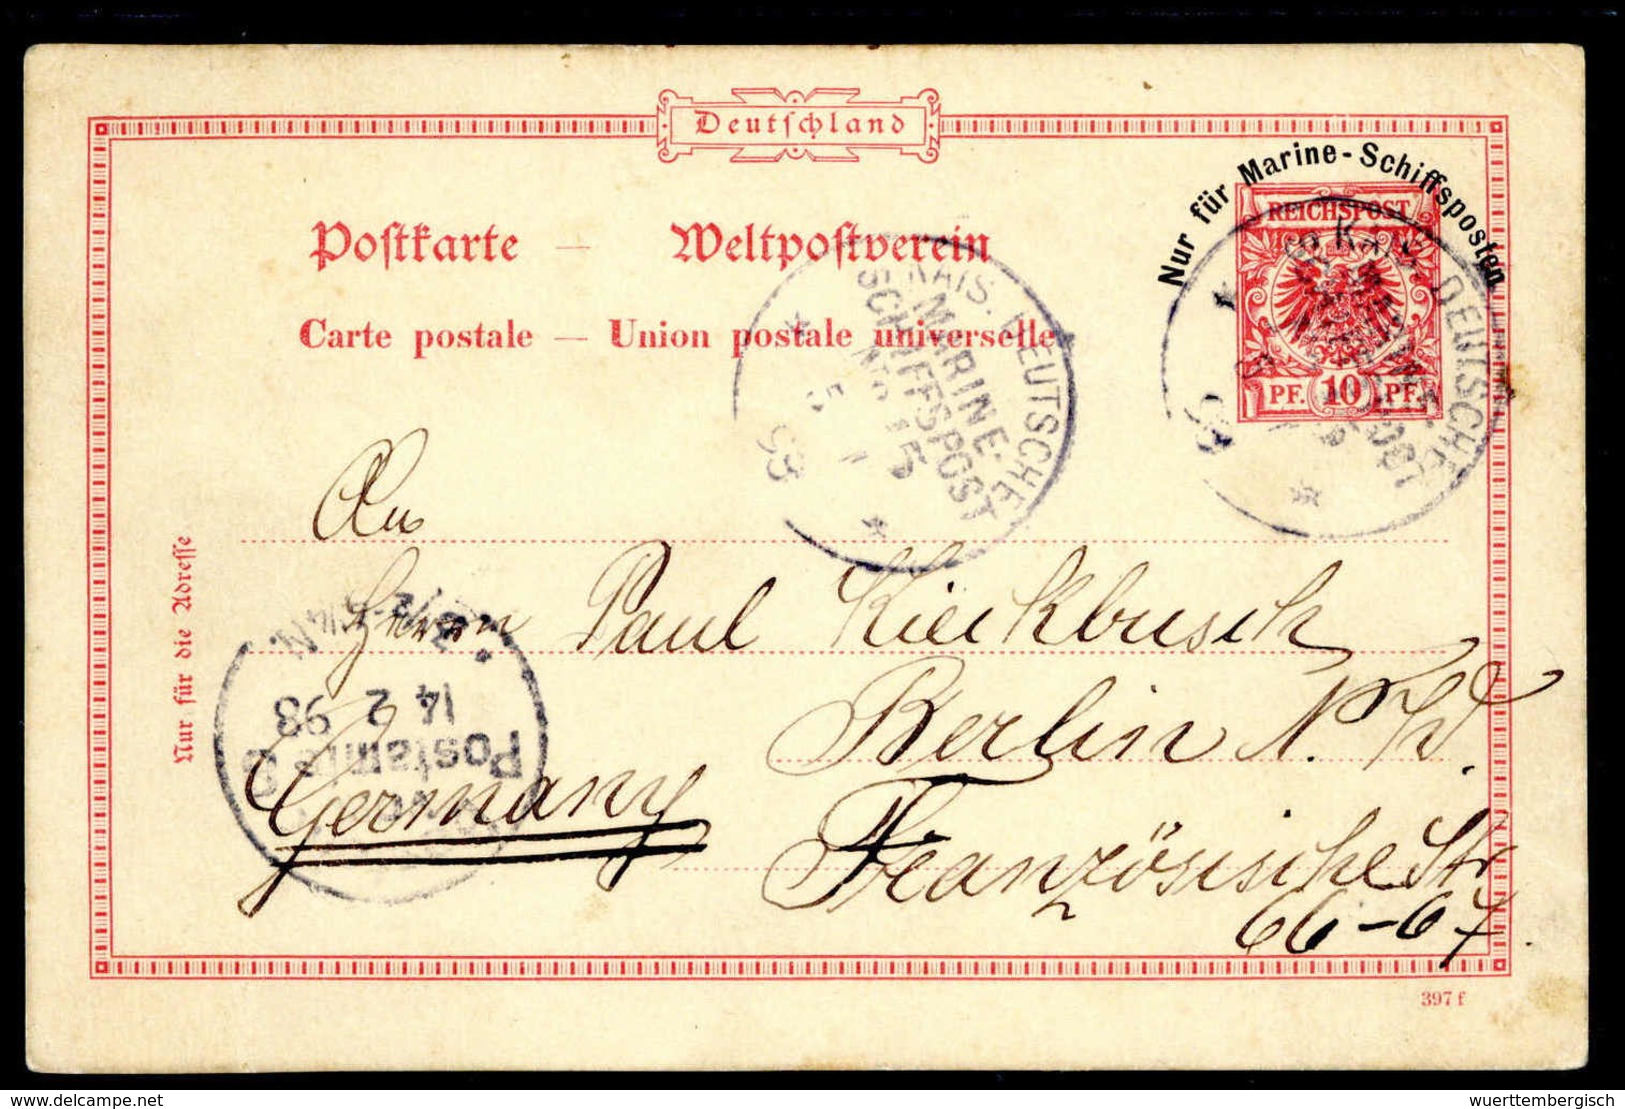 Deutschland
Nur für Marine-Schiffsposten
REICHSPOST
PF. 10 PF.
Postkarte — Weltpostverein
Carte postale — Union postale universelle
KAIS. DEUTSCHE
MARINE-
SCHIFFSPOST
No 15
5 1
98
KAIS. DEUTSCHE
MARINE-
SCHIFFSPOST
98
An
Herrn Paul Kieckbusch
Berlin N.W.
Germany
Französische Str
66-67.
14 2 98
Postamt 8
Nur für die Adresse
397 f
delcampe.net
wuerttembergisch